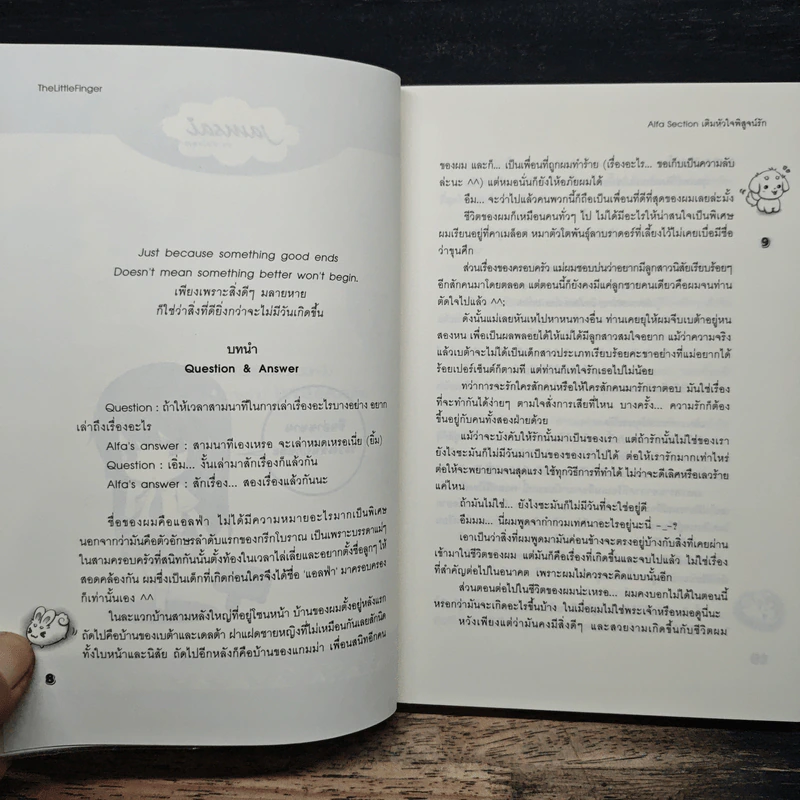 TheLittleFinger
jamsai
Just because something good ends
Doesn't mean something better won't begin.
เพียงเพราะสิ่งดีๆ มลายหาย
ก็ใช่ว่าสิ่งที่ดียิ่งกว่าจะไม่มีวันเกิดขึ้น
บทนำ
Question & Answer
Question : ถ้าให้เวลาสามนาทีในการเล่าเรื่องอะไรบางอย่าง อยาก
เล่าถึงเรื่องอะไร
Alfa's answer : สามนาทีเองเหรอ จะเล่าหมดเหรอเนี่ย (ยิ้ม)
Question : เอิ่ม... งั้นเล่ามาสักเรื่องก็แล้วกัน
Alfa's answer : สักเรื่อง... สองเรื่องแล้วกันนะ
ชื่อของผมคือแอลฟ่า ไม่ได้มีความหมายอะไรมากเป็นพิเศษ
นอกจากว่ามันคือตัวอักษรลำดับแรกของกรีกโบราณ เป็นเพราะบรรดาแม่ๆ
ในสามครอบครัวที่สนิทกันนั้นตั้งท้องในเวลาไล่เลี่ยและอยากตั้งชื่อลูกๆ ให้
สอดคล้องกัน ผมซึ่งเป็นเด็กที่เกิดก่อนใครจึงได้ชื่อ 'แอลฟ่า' มาครอบครอง
ก็เท่านั้นเอง ^^
ในละแวกบ้านสามหลังใหญ่ที่อยู่โซนหน้า บ้านของผมตั้งอยู่หลังแรก
ถัดไปคือบ้านของเบต้าและเดลต้า ฝาแฝดชายหญิงที่ไม่เหมือนกันเลยสักนิด
ทั้งใบหน้าและนิสัย ถัดไปอีกหลังก็คือบ้านของแกมม่า เพื่อนสนิทอีกคน
8
Alfa Section เติมหัวใจพิสูจน์รัก
ของผม และก็... เป็นเพื่อนที่ถูกผมทำร้าย (เรื่องอะไร... ขอเก็บเป็นความลับ
ล่ะนะ ^^) แต่หมอนั่นก็ยังให้อภัยผมได้
อืม... จะว่าไปแล้วคนพวกนี้ก็ถือเป็นเพื่อนที่ดีที่สุดของผมเลยล่ะมั้ง
ชีวิตของผมก็เหมือนคนทั่วๆ ไป ไม่ได้มีอะไรให้น่าสนใจเป็นพิเศษ
ผมเรียนอยู่ที่คาเมล็อต หมาตัวโตพันธุ์ลาบราดอร์ที่เลี้ยงไว้ไม่เคยเบื่อมีชื่อ
ว่าขุนศึก
ส่วนเรื่องของครอบครัว แม่ผมชอบบ่นว่าอยากมีลูกสาวนิสัยเรียบร้อยๆ
อีกสักคนมาโดยตลอด แต่ตอนนี้ก็ยังคงมีแค่ลูกชายคนเดียวคือผมจนท่าน
ตัดใจไปแล้ว ^^;
ดังนั้นแม่เลยหันเหไปหาหนทางอื่น ท่านเคยยุให้ผมจีบเบต้าอยู่หน
สองหน เพื่อเป็นผลพลอยได้ให้แม่ได้มีลูกสาวสมใจอยาก แม้ว่าความจริง
แล้วเบต้าจะไม่ได้เป็นเด็กสาวประเภทเรียบร้อยคะขาอย่างที่แม่อยากได้
ร้อยเปอร์เซ็นต์ก็ตามที แต่ท่านก็เทใจรักเธอไปไม่น้อย
ทว่าการจะรักใครสักคนหรือให้ใครสักคนมารักเราตอบ มันใช่เรื่อง
ที่จะทำกันได้ง่ายๆ ตามใจสั่งการเสียที่ไหน บางครั้ง... ความรักก็ต้อง
ขึ้นอยู่กับคนทั้งสองฝ่ายด้วย
แม้ว่าจะบังคับให้รักนั้นมาเป็นของเรา แต่ถ้ารักนั้นไม่ใช่ของเรา
ยังไงซะมันก็ไม่มีวันมาเป็นของของเราไปได้ ต่อให้เรารักมากเท่าไหร่
ต่อให้จะพยายามจนสุดแรง ใช้ทุกวิธีการที่ทำได้ ไม่ว่าจะดีเลิศหรือเลวร้าย
แค่ไหน
ถ้ามันไม่ใช่... ยังไงซะมันก็ไม่มีวันที่จะใช่อยู่ดี
อืมมม... นี่ผมพูดจากำกวมเทศนาอะไรอยู่นะนี่ -_-?
เอาเป็นว่าสิ่งที่ผมพูดมามันค่อนข้างจะตรงอยู่บ้างกับสิ่งที่เคยผ่าน
เข้ามาในชีวิตของผม แต่มันก็คือเรื่องที่เกิดขึ้นและจบไปแล้ว ไม่ใช่เรื่อง
ที่สำคัญต่อไปในอนาคต เพราะผมไม่ควรจะคิดแบบนั้นอีก
ส่วนตอนต่อไปในชีวิตของผมน่ะเหรอ... ผมคงบอกไม่ได้ในตอนนี้
หรอกว่ามันจะเกิดอะไรขึ้นบ้าง ในเมื่อผมไม่ใช่พระเจ้าหรือหมอดูนี่นะ
หวังเพียงแต่ว่ามันคงมีสิ่งดีๆ และสวยงามเกิดขึ้นกับชีวิตผม
9